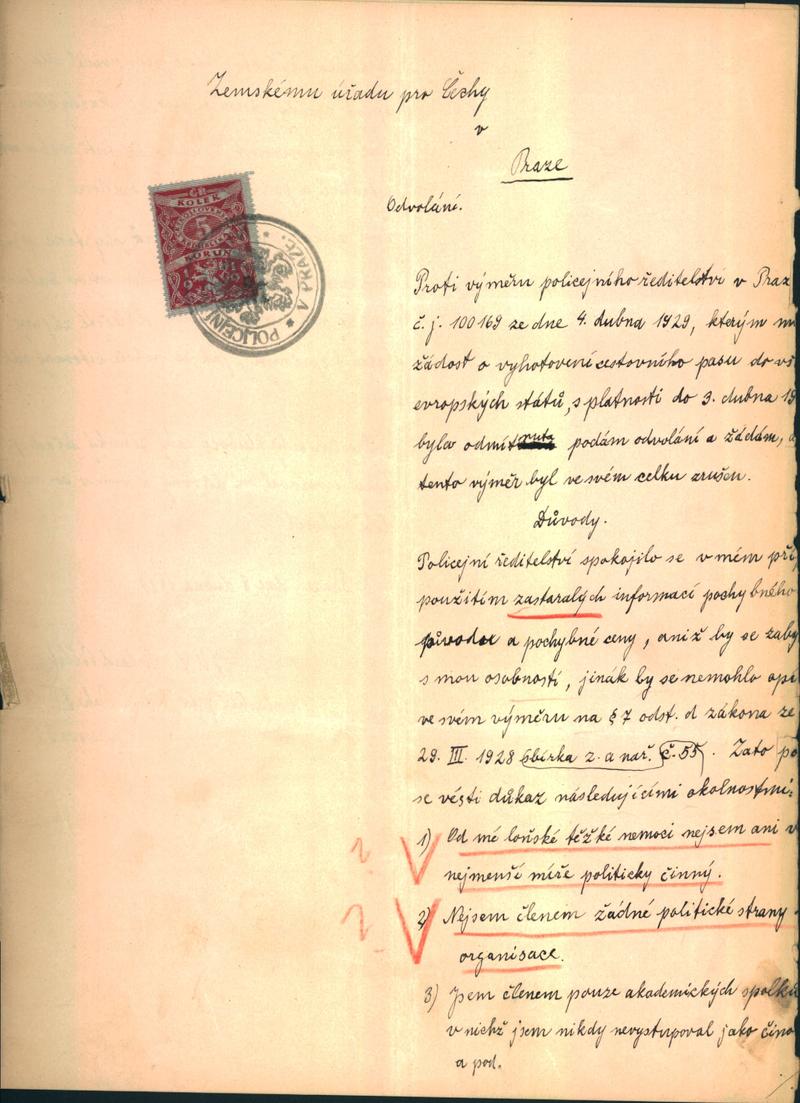 Zemskému úřadu pro Čechy
v
Praze
Odvolání.
KOLEK
5
KORUN
POLICEJNÍ
V PRAZE.
Proti výměru policejního ředitelství v Praz
č.j. 100169 ze dne 4. dubna 1929, kterým m
žádost o vyhotovení cestovního pasu do vš
evropských států, s platností do 3. dubna 19
byla podám odvolání a žádám, a
tento výměr byl ve svém celku zrušen.
Důvody.
Policejní ředitelství spokojilo se v mém při
použitím zastaralých informací pochybného
původu a pochybné ceny, aniž by se zaby
s mou osobností, jinák by se nemohlo opí
ve svém výměru na § 7 odst. d zákona ze
29. III. 1928 sbírka z. a nař. č. 55. Zato po
se vésti důkaz následujícími okolnostmi:
1) Od mé loňské těžké nemoci nejsem ani v
nejmenší míře politicky činný.
2) Nejsem členem žádné politické strany
organisace.
3) Jsem členem pouze akademických spolků
v nichž jsem nikdy nevystupoval jako čino
a pod.